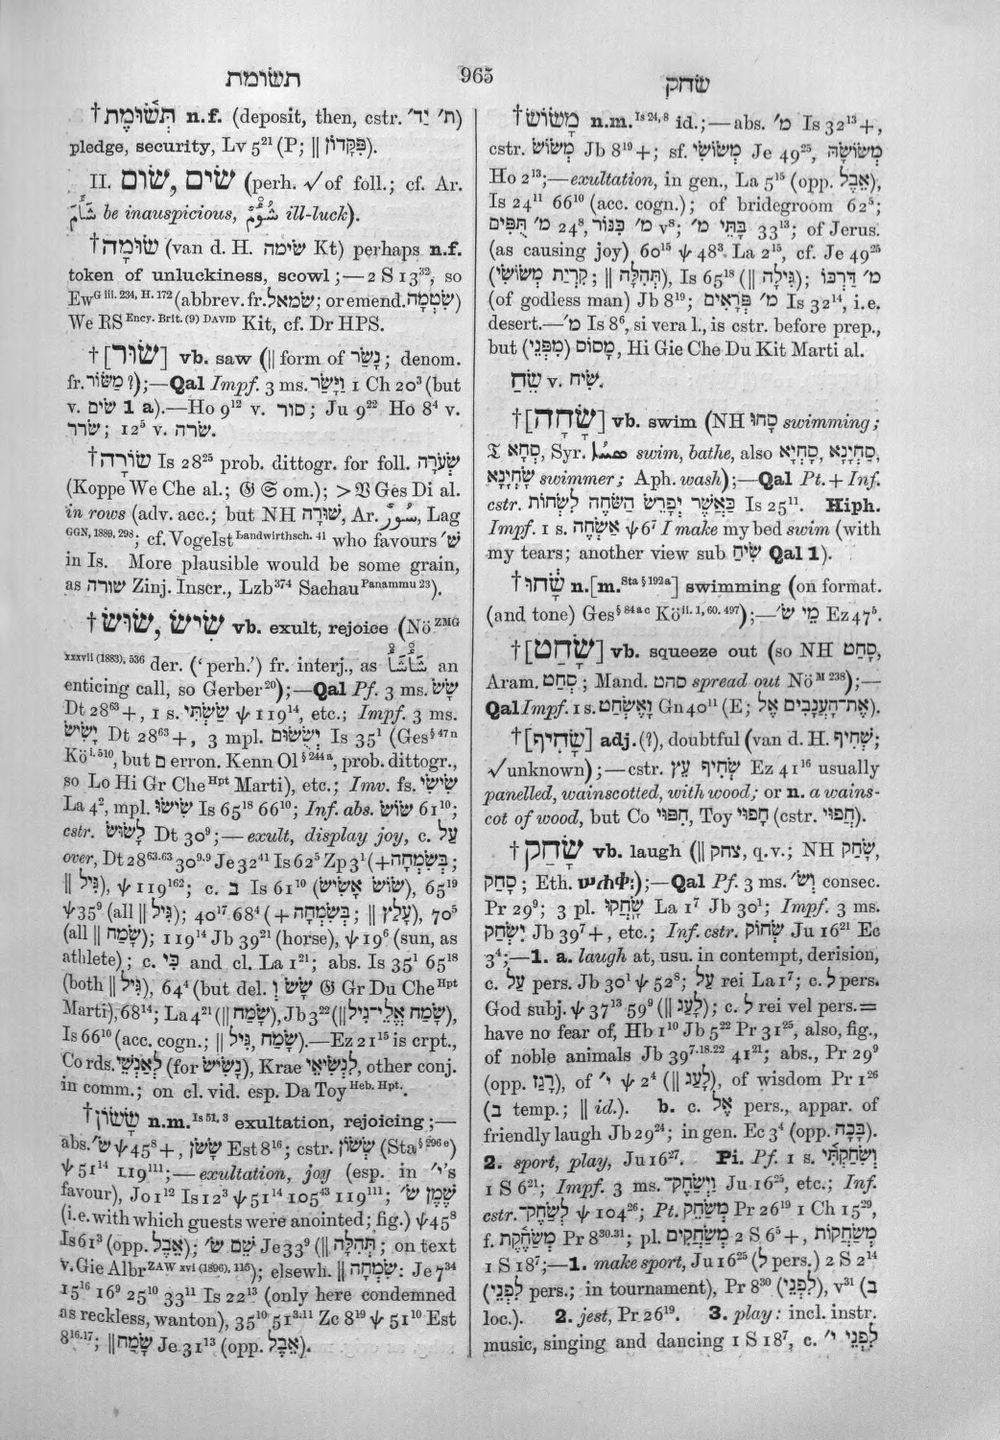 תשומת
965
שׂחק
†תְּשׂוּמֶת n.f. (deposit, then, cstr. ת׳ יָד׳)
pledge, security, Lv 5²¹ (P; ∥ פִּקָּדוֹן).
II. שׂוּם, שִׂים (perh. √ of foll.; cf. Ar.
be inauspicious, ill-luck).
†שׂוּמָה (van d. H. שׂימה Kt) perhaps n.f.
token of unluckiness, scowl;—2 S 13³², so
Ew G iii. 234, H. 172 (abbrev. fr. שׂמאל; or emend. שִׂטְמָה)
We RS Ency. Brit. (9) DAVID Kit, cf. Dr HPS.
†[שׂוּר] vb. saw (∥ form of נָשַׂר; denom.
fr. מַשּׂוֹר?);—Qal Impf. 3 ms. וַיָּשַׂר 1 Ch 20³ (but
v. שׂים 1 a).—Ho 9¹² v. סור; Ju 9²² Ho 8⁴ v.
שׂרר; 12⁵ v. שׂרה.
†שׂוֹרָה Is 28²⁵ prob. dittogr. for foll. שְׂעֹרָה
(Koppe We Che al.; 𝔊 𝔖 om.); >𝔙 Ges Di al.
in rows (adv. acc.; but NH שׁוּרָה, Ar. سُورٌ, Lag
GGN, 1889, 298; cf. Vogelst Landwirthsch. 41 who favours שׂ׳
in Is. More plausible would be some grain,
as שורה Zinj. Inscr., Lzb³⁷⁴ Sachau Panammu 23).
†שׂוּשׂ, שִׂישׂ vb. exult, rejoice (Nö ZMG
xxxvii (1883), 536 der. (‘perh.’) fr. interj., as an
enticing call, so Gerber²⁰);—Qal Pf. 3 ms. שָׂשׂ
Dt 28⁶³+, 1 s. שַׂשְׂתִּי ψ 119¹⁴, etc.; Impf. 3 ms.
יָשִׂישׂ Dt 28⁶³+, 3 mpl. יְשֻׂשׂוּם Is 35¹ (Ges § 47 n
Kö i. 510, but ם erron. Kenn Ol § 244 a, prob. dittogr.,
so Lo Hi Gr Che Hpt Marti), etc.; Imv. fs. שִׂישִׂי
La 4², mpl. שִׂישׂוּ Is 65¹⁸ 66¹⁰; Inf. abs. שׂוֹשׂ 61¹⁰;
cstr. לָשׂוּשׂ Dt 30⁹;—exult, display joy, c. עַל
over, Dt 28⁶³·⁶³ 30⁹·⁹ Je 32⁴¹ Is 62⁵ Zp 3¹ (+בְּשִׂמְחָה;
∥ גִּיל), ψ 119¹⁶²; c. ב Is 61¹⁰ (שׂוֹשׂ אָשִׂישׂ), 65¹⁹
ψ 35⁹ (all ∥ גִּיל); 40¹⁷ 68⁴ (+בְּשִׂמְחָה; ∥ עָלַץ), 70⁵
(all ∥ שָׂמַח); 119¹⁴ Jb 39²¹ (horse), ψ 19⁶ (sun, as
athlete); c. כִּי and cl. La 1²¹; abs. Is 35¹ 65¹⁸
(both ∥ גִּיל), 64⁴ (but del. שָׂשׂ וְ 𝔊 Gr Du Che Hpt
Marti), 68¹⁴; La 4²¹ (∥ שָׂמַח), Jb 3²² (∥ שָׂמֵחַ אֱלֵי־גִיל),
Is 66¹⁰ (acc. cogn.; ∥ שָׂמַח, גִּיל).—Ez 21¹⁵ is crpt.,
Co rds. לַאֲנְשֵׁי (for נָשִׂישׂ), Krae לִנְשִׂיאֵי, other conj.
in comm.; on cl. vid. esp. Da Toy Heb. Hpt.
†שָׂשׂוֹן n.m. Is 51, 3 exultation, rejoicing;—
abs. שׂ׳ ψ 45⁸+, שָׂשֹׂן Est 8¹⁶; cstr. שְׂשׂוֹן (Sta § 296 e)
ψ 51¹⁴ 119¹¹¹;—exultation, joy (esp. in י׳'s
favour), Jo 1¹² Is 12³ ψ 51¹⁴ 105⁴³ 119¹¹¹; שֶׁמֶן שׂ׳
(i.e. with which guests were anointed; fig.) ψ 45⁸
Is 61³ (opp. אֵבֶל); שֵׁם שׂ׳ Je 33⁹ (∥ תְּהִלָּה; on text
v. Gie Albr ZAW xvi (1896), 115); elsewh. ∥ שִׂמְחָה: Je 7³⁴
15¹⁶ 16⁹ 25¹⁰ 33¹¹ Is 22¹³ (only here condemned
as reckless, wanton), 35¹⁰ 51³·¹¹ Zc 8¹⁹ ψ 51¹⁰ Est
8¹⁶·¹⁷; ∥ שָׂמַח Je 31¹³ (opp. אֵבֶל).
†מָשׂוֹשׂ n.m. Is 24, 8 id.;—abs. מ׳ Is 32¹³+,
cstr. מְשׂוֹשׂ Jb 8¹⁹+; sf. מְשׂוֹשִׂי Je 49²⁵, מְשׂוֹשָׂהּ
Ho 2¹³;—exultation, in gen., La 5¹⁵ (opp. אֵבֶל),
Is 24¹¹ 66¹⁰ (acc. cogn.); of bridegroom 62⁵;
מ׳ תֻּפִּים 24⁸, מ׳ כִּנּוֹר v⁸; בָּתֵּי מ׳ 33¹³; of Jerus.
(as causing joy) 60¹⁵ ψ 48³ La 2¹⁵, cf. Je 49²⁵
(קִרְיַת מְשׂוֹשִׂי; ∥ תְּהִלָּה), Is 65¹⁸ (∥ גִּילָה); מ׳ דַּרְכּוֹ
(of godless man) Jb 8¹⁹; מ׳ פְּרָאִים Is 32¹⁴, i.e.
desert.—מ׳ Is 8⁶, si vera l., is cstr. before prep.,
but מָסוֹם (מִפְּנֵי), Hi Gie Che Du Kit Marti al.
שֵׂחַ v. שׂיח.
†[שָׂחָה] vb. swim (NH סָחוּ swimming;
𝔗 סְחָא, Syr. ܣܚܐ swim, bathe, also סְחָיָא, סַחְיָנָא,
שַׂחְיָנָא swimmer; Aph. wash);—Qal Pt. + Inf.
cstr. כַּאֲשֶׁר יְפָרֵשׂ הַשֹּׂחֶה לִשְׂחוֹת Is 25¹¹. Hiph.
Impf. 1 s. אַשְׂחֶה ψ 6⁷ I make my bed swim (with
my tears; another view sub שׂיח Qal 1).
†שָׂחוּ n.[m. Sta § 192 a] swimming (on format.
(and tone) Ges § 84 a c Kö ii. 1, 60. 497);—מֵי שׂ׳ Ez 47⁵.
†[שָׂחַט] vb. squeeze out (so NH סָחַט,
Aram. סְחַט; Mand. סהט spread out Nö M 238);—
Qal Impf. 1 s. וָאֶשְׂחַט Gn 40¹¹ (E; אֶת־הָעֲנָבִים אֶל).
†[שָׂחִיף] adj.(?), doubtful (van d. H. שְׁחִיף;
√ unknown);—cstr. שְׂחִיף עֵץ Ez 41¹⁶ usually
panelled, wainscotted, with wood; or n. a wains-
cot of wood, but Co חִפּוּי, Toy חָפוּי (cstr. חֲפוּי).
†שָׂחַק vb. laugh (∥ צחק, q.v.; NH שָׂחַק,
סָחַק; Eth.);—Qal Pf. 3 ms. וְשׂ׳ consec.
Pr 29⁹; 3 pl. שָׂחֲקוּ La 1⁷ Jb 30¹; Impf. 3 ms.
יִשְׂחַק Jb 39⁷+, etc.; Inf. cstr. שְׂחוֹק Ju 16²¹ Ec
3⁴;—1. a. laugh at, usu. in contempt, derision,
c. עַל pers. Jb 30¹ ψ 52⁸; עַל rei La 1⁷; c. ל pers.
God subj. ψ 37¹³ 59⁹ (∥ לָעַג); c. ל rei vel pers.=
have no fear of, Hb 1¹⁰ Jb 5²² Pr 31²⁵, also, fig.,
of noble animals Jb 39⁷·¹⁸·²² 41²¹; abs., Pr 29⁹
(opp. רָגַז), of י׳ ψ 2⁴ (∥ לָעַג), of wisdom Pr 1²⁶
(ב temp.; ∥ id.). b. c. אֶל pers., appar. of
friendly laugh Jb 29²⁴; in gen. Ec 3⁴ (opp. בָּכָה).
2. sport, play, Ju 16²⁷. Pi. Pf. 1 s. וְשִׂחַקְתִּי
1 S 6²¹; Impf. 3 ms. וַיְשַׂחֶק־ Ju 16²⁵, etc.; Inf.
cstr. לְשַׂחֶק־ ψ 104²⁶; Pt. מְשַׂחֵק Pr 26¹⁹ 1 Ch 15²⁹,
f. מְשַׂחֶקֶת Pr 8³⁰·³¹; pl. מְשַׂחֲקִים 2 S 6⁵+, מְשַׂחֲקוֹת
1 S 18⁷;—1. make sport, Ju 16²⁵ (ל pers.) 2 S 2¹⁴
(לִפְנֵי pers.; in tournament), Pr 8³⁰ (לִפְנֵי), v³¹ (ב
loc.). 2. jest, Pr 26¹⁹. 3. play: incl. instr.
music, singing and dancing 1 S 18⁷, c. לִפְנֵי י׳